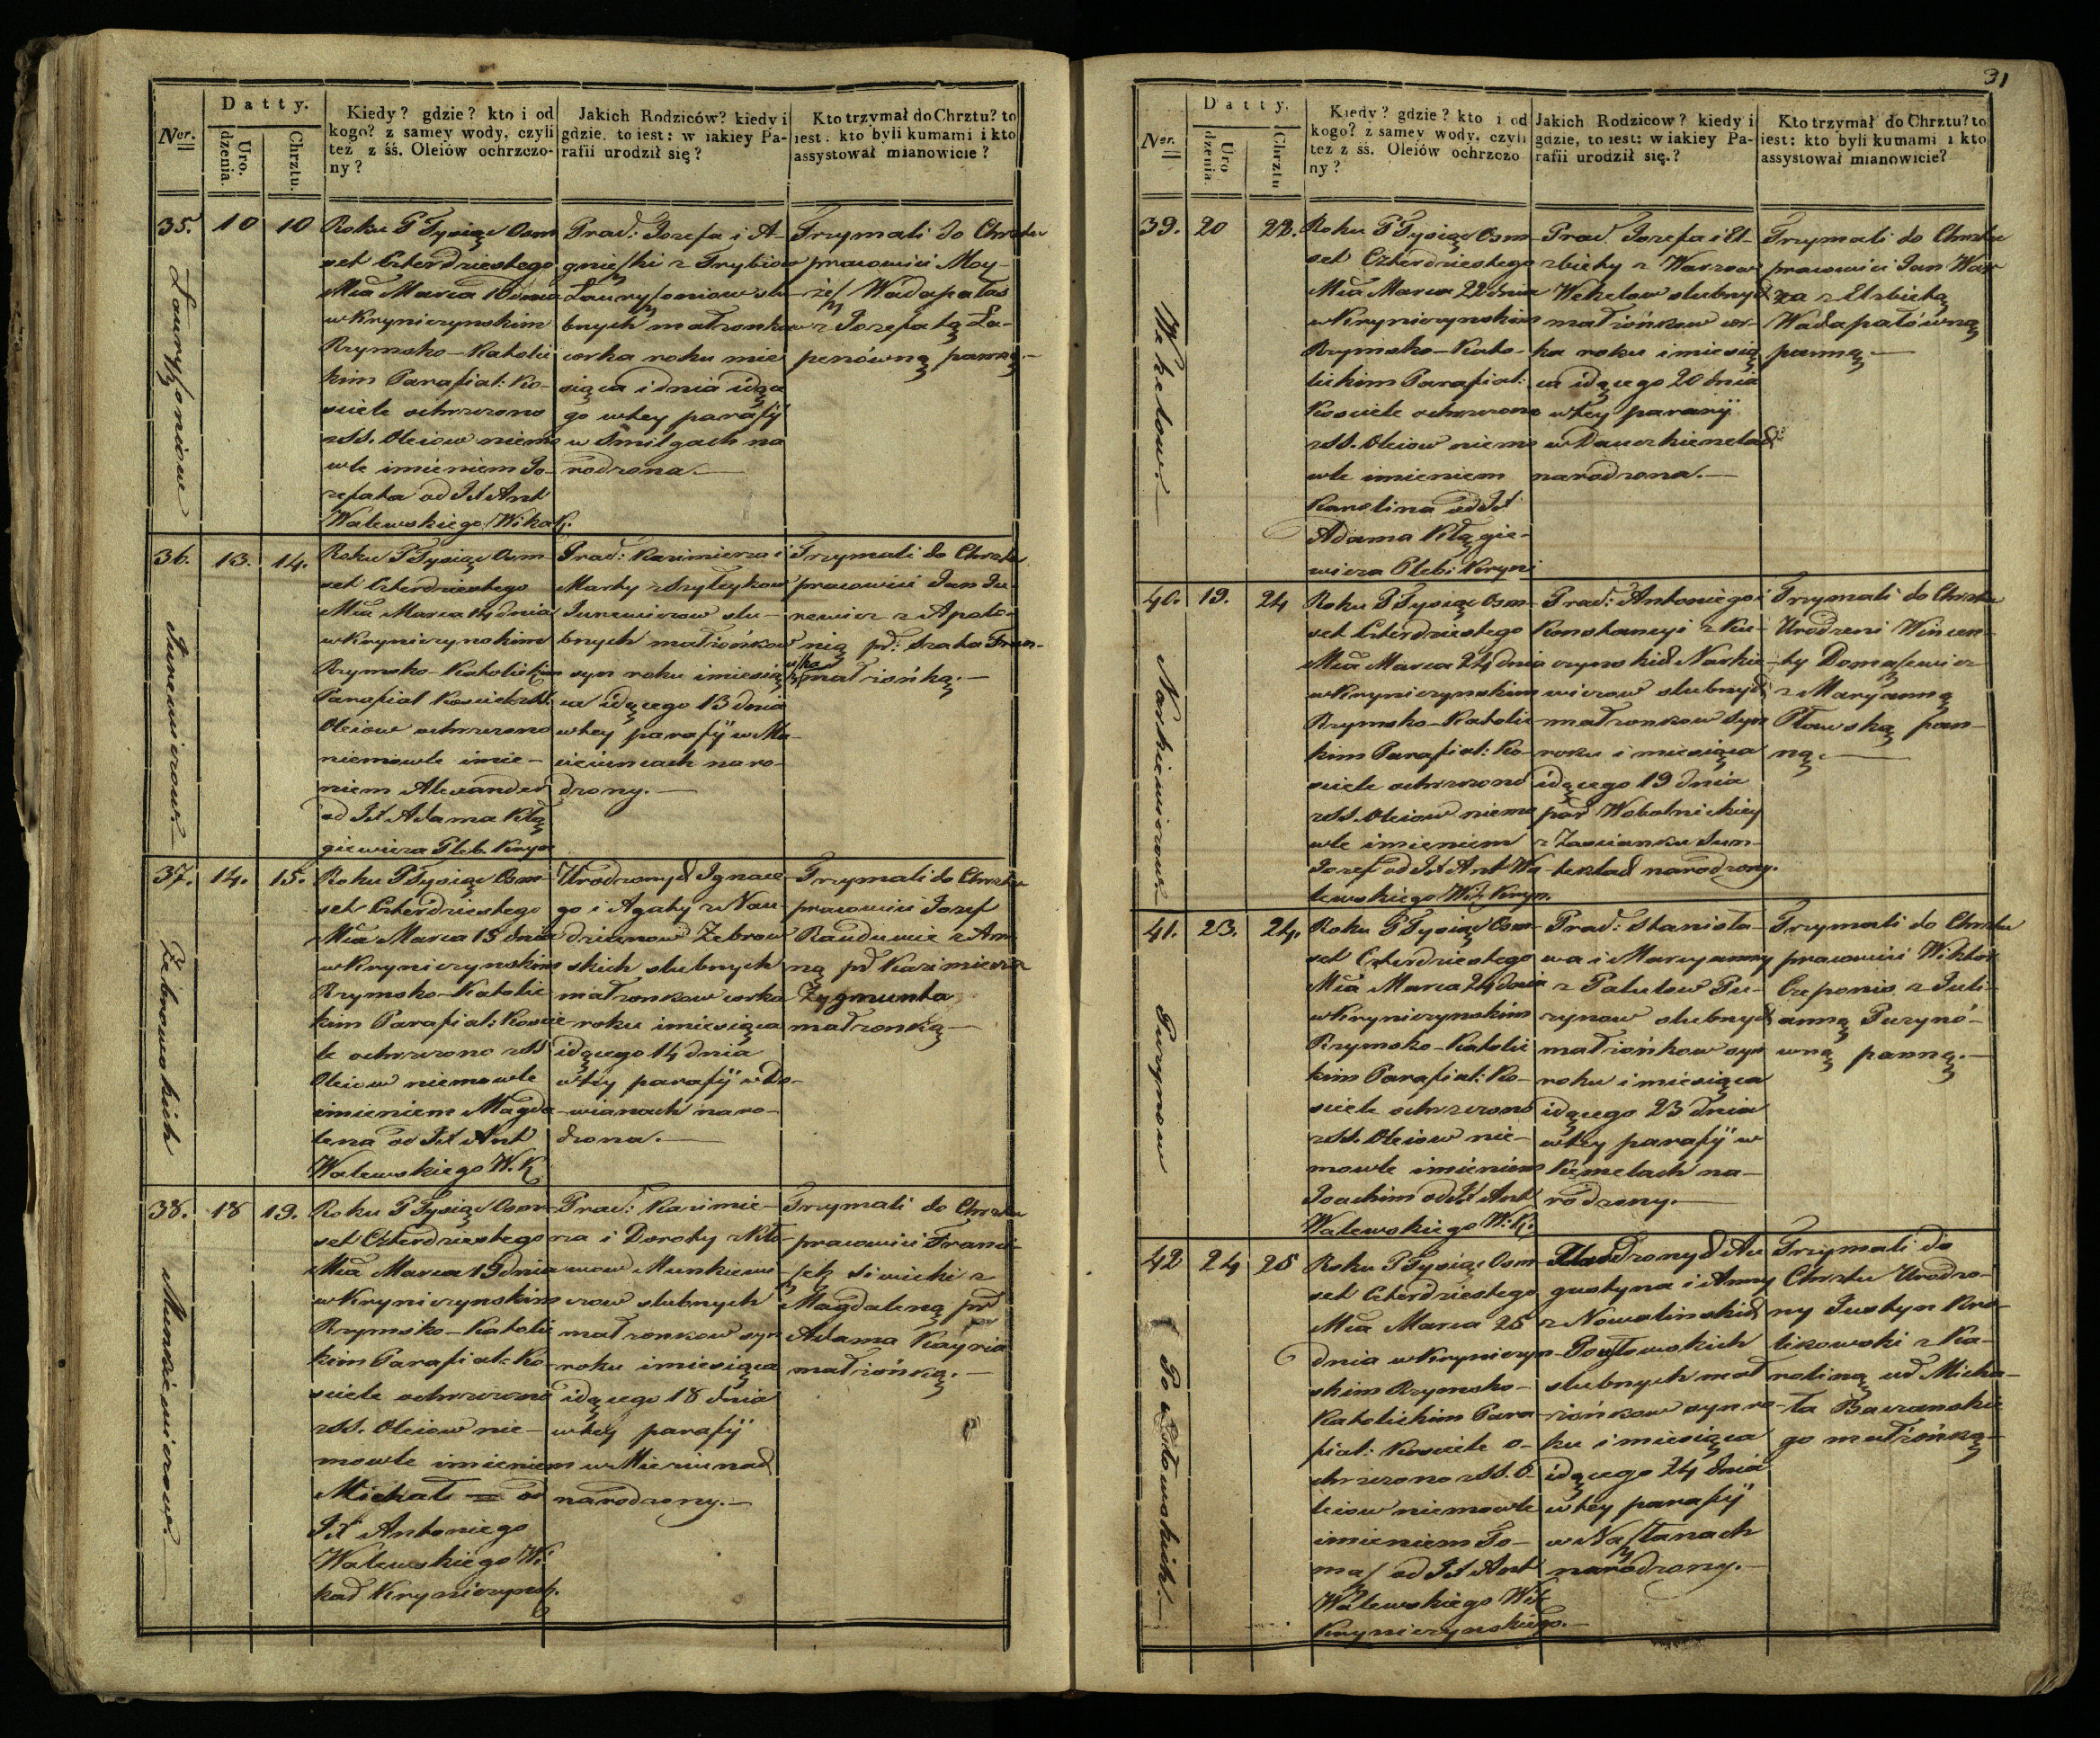 Datty.
Ner.
Uro.
dzenia.
Chrztu.
Kiedy? gdzie? kto i od
kogo? z samey wody, czyli
też z śś. Oleiów ochrzczo-
ny?
Jakich Rodziców? kiedy i
gdzie, to iest: w iakiey Pa-
rafii urodził się?
Kto trzymał do Chrztu? to
iest: kto byli kumami i kto
assystował mianowicie?
35.
10
10
Roku P Tysiąc Osm
set Czterdziestego
Mca Marca 10 dnia
w Kryniczynskim
Rzymsko-Katolic
kim Parafial: Ko-
sciele ochrzczono
z SS. Oleiow niemo
wle imieniem Jo-
zefata od JX Ant
Walewskiego Wika K.
Prad: Jozefa i A-
gnieszki z Trybiow
Ławryszoniow slu-
bnych małzonkow
corka roku mie
siąca i dnia idące
go w tey parafij
w Smilgach na
rodzona.
Trzymali do Chrztu
pracowici Moy-
żesz Wadapałas
z Jozefatą Ła-
penówną panną.
36.
13.
14.
Roku P Tysiąc Osm
set Czterdziestego
Mca Marca 14 dnia
w Kryniczynskim
Rzymsko-Katolickim
Parafial Kosciele z SS
Oleiow ochrzczono
niemowle imie-
niem Alexander
od JX Adama Kłą
giewicza Pleb. Kryn
Prad: Kazimierza i
Marty z Szyleykow
Jurewiczow slu-
bnych małżonkow
syn roku i miesią
ca idącego 13 dnia
w tey parafij w Ma-
ciciuncach naro-
dzony.
Trzymali do Chrztu
pracowici Jan Ju-
rewicz z Apolo-
nią
małżonką.
37.
14.
15.
Roku P Tysiąc Osm-
set Czterdziestego
Mca Marca 15 dnia
w Kryniczynskim
Rzymsko-Katolic
kim Parafial: Koscie
le ochrzczono z SS
Oleiow niemowle
imieniem Magda
lena od JX Ant
Walewskiego W. K
Urodzonych Ignace
go i Agaty z Nau
dzianow Żebrow
skich slubnych
małzonkow corka
roku i miesiąca
idącego 14 dnia
w tey parafij w Do-
wianach naro-
dzona.
Trzymali do Chrztu
pracowici Jozef
Rauduwie z An
ną pd Kazimierza
Zygmunta
małzonką
38.
18
19.
Roku P Tysiąc Osm
set Czterdziestego
Mca Marca 19 dnia
w Kryniczynskim
Rzymsko-Katolic
kim Parafial: Ko-
sciele ochrzczono
z SS. Oleiow nie-
mowle imieniem
Michał od
JX Antoniego
Walewskiego Wi
kad Kryniczynsk.
Prad: Kazimie-
rza i Doroty z Kło-
wow Munkiewi
czow slubnych
małzonkow syn
roku i miesiąca
idącego 18 dnia
w tey parafij
w Mieciunach
narodzony.
Trzymali do Chrztu
pracowici Franci-
szek Siwicki z
Magdaleną pd
Adama Kayria
małżonką.
Ławryszoniow
Jurewiczow
Żebrowskich
Munkiewiczow
31
Datty.
Ner.
Uro
dzenia.
Chrztu
Kiedy? gdzie? kto i od
kogo? z samey wody, czyli
też z śś. Oleiów ochrzczo
ny?
Jakich Rodziców? kiedy i
gdzie, to iest: w iakiey Pa-
rafii urodził się.?
Kto trzymał do Chrztu? to
iest: kto byli kumami i kto
assystował mianowicie?
39.
20
22.
Roku P Tysiąc Osm-
set Czterdziestego
Mca Marca 22 dnia
w Krynicynskim
Rzymsko-Kato-
lickim Parafial:
Kosciele ochrzczono
z SS. Oleiow niemo
wle imieniem
Karolina od JX
Adama Kłągie-
wicza Pleb: Kryni
Prad. Jozefa i El-
zbiety z Warzow
Wekelow slubnych
małżonkow cor-
ka roku i miesią
ca idącego 20 dnia
w tey parafij
w Dauczkiemelach
narodzona.
Trzymali do Chrztu
pracowici Jan War
za z Elzbietą
Wadapałówną
panną.
40.
19.
24
Roku P Tysiąc Osm-
set Czterdziestego
Mca Marca 24 dnia
w Krynicynskim
Rzymsko-Katolic
kim Parafial: Ko-
sciele ochrzczono
z SS. Oleiow niemo
wle imieniem
Jozef od JX Ant Wa
lewskiego Wik Kryn.
Prad: Antoniego i
Konstancyi z Ku-
czynskich Narkie
wiczow slubnych
małzonkow syn
roku i miesiąca
idącego 19 dnia
par Wobolnickiey
z Zascianku Sum-
lekład narodzony.
Trzymali do Chrztu
Urodzeni Wincen-
ty Domaszewicz
z Maryanną
Pławską pan-
ną.
41.
23.
24.
Roku P Tysiąc Osm-
set Czterdziestego
Mca Marca 24 dnia
w Krynicynskim
Rzymsko-Katolic
kim Parafial: Ko-
sciele ochrzczono
z SS. Oleiow nie-
mowle imieniem
Joachim od JX Ant
Walewskiego W. K.
Prad: Stanisła-
wa i Maryanny
z Palulow Pu-
rynow slubnych
małżonkow syn
roku i miesiąca
idącego 23 dnia
w tey parafij w
Kiemelach na-
rodzony.
Trzymali do Chrztu
pracowici Wiktor
Czeponis z Juli-
anną Puzynó-
wną panną.
42
24
25
Roku P Tysiąc Osm-
set Czterdziestego
Mca Marca 25
dnia w Krynicyn-
skim Rzymsko-
Katolickim Para
fial: Kosciele o-
chrzczono z SS. O-
leiow niemowle
imieniem To-
masz od JX Ant
Walewskiego Wik
Krynicynskiego.
Urodzonych Au
gustyna i Anny
z Nowalinskich
Powłowskich
slubnych mał
żonkow syn ro-
ku i miesiąca
idącego 24 dnia
w tey parafij
w Naszłanach
narodzony.
Trzymali do
Chrztu Urodzo-
ny Justyn Kro-
likowski z Ka-
roliną ud Micha-
ła Baczanskie
go małżonką
Wekelow.
Narkiewiczow
Puzynow
Powłowskich.